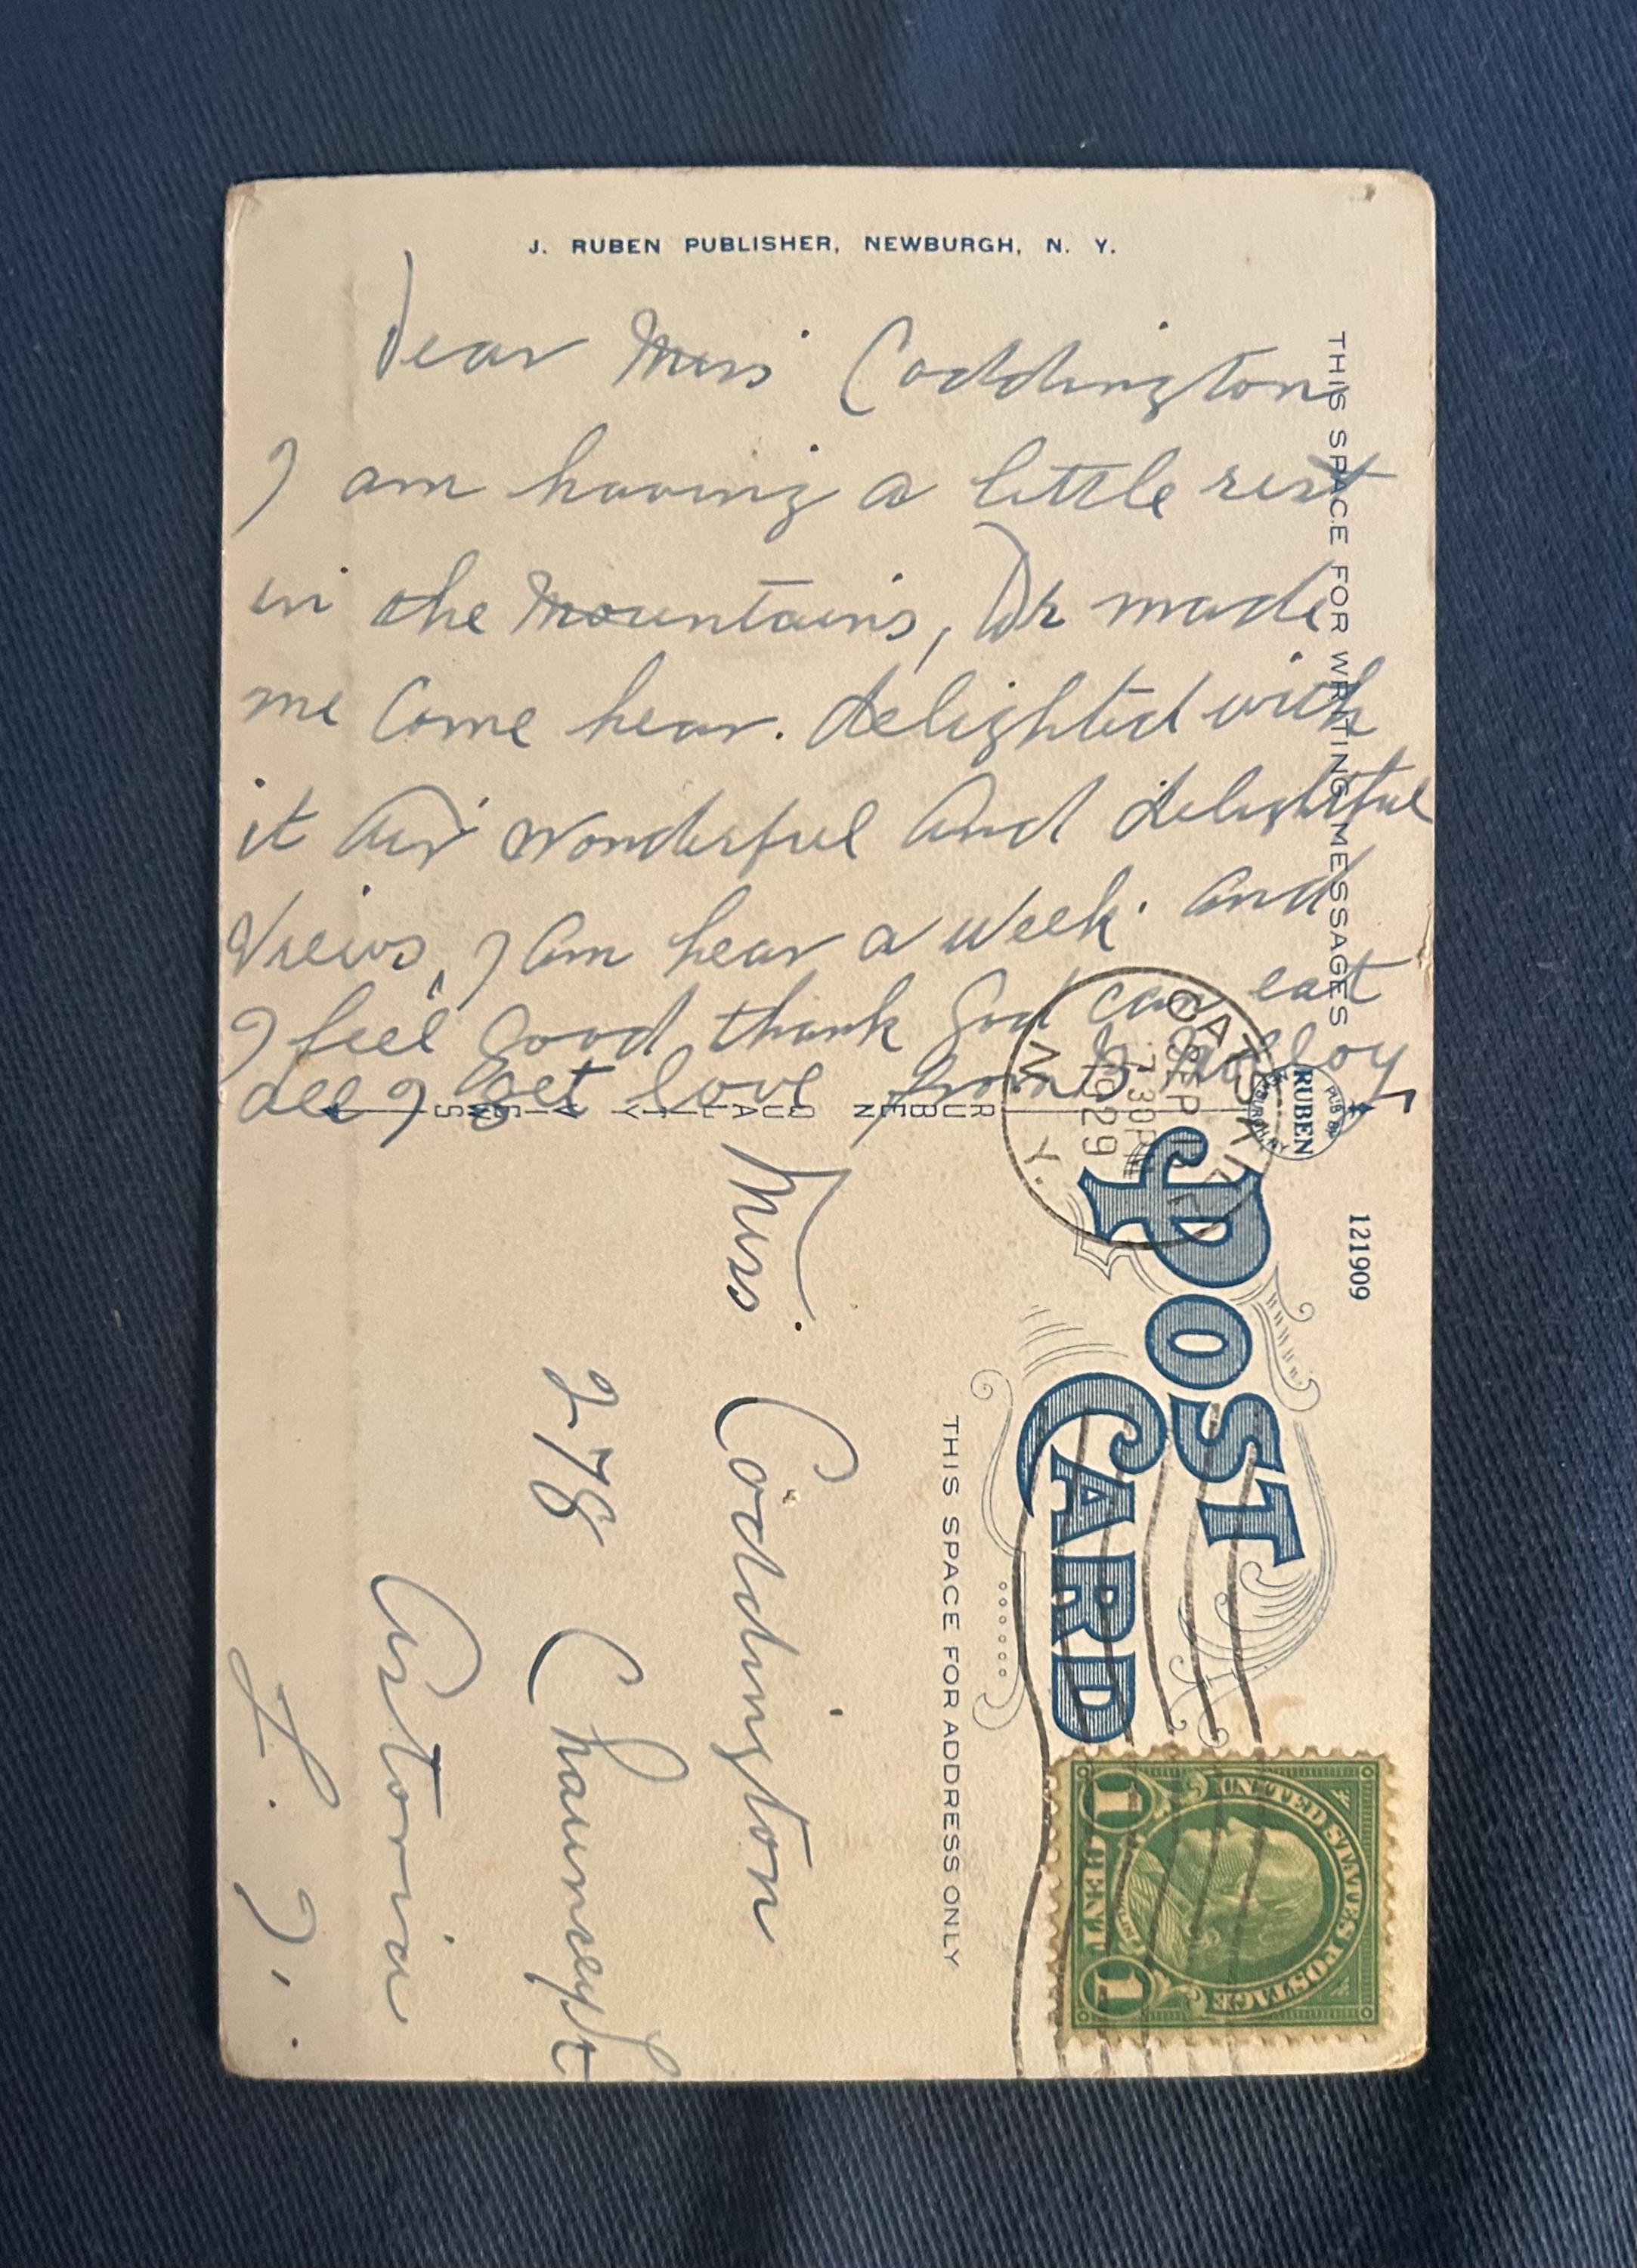 J. RUBEN PUBLISHER, NEWBURGH, N. Y.
Dear Miss Coddington
I am having a little rest
in the mountains, Dr made
me come hear. delighted with
it air wonderful and delightful
views, I am hear a week. and
I feel good thank God can eat
all I get love from B
THIS SPACE FOR WRITING MESSAGES
RUBEN QUALITY VIEWS
CATSKILL
SEP
7 30P
1929
N. Y.
PUB BY
RUBEN
NEWBURGH, NY
121909
POST
CARD
THIS SPACE FOR ADDRESS ONLY
UNITED STATES POSTAGE
FRANKLIN
1 CENT 1
Miss. Coddington
278 Chauncey st
Astoria
L. I.